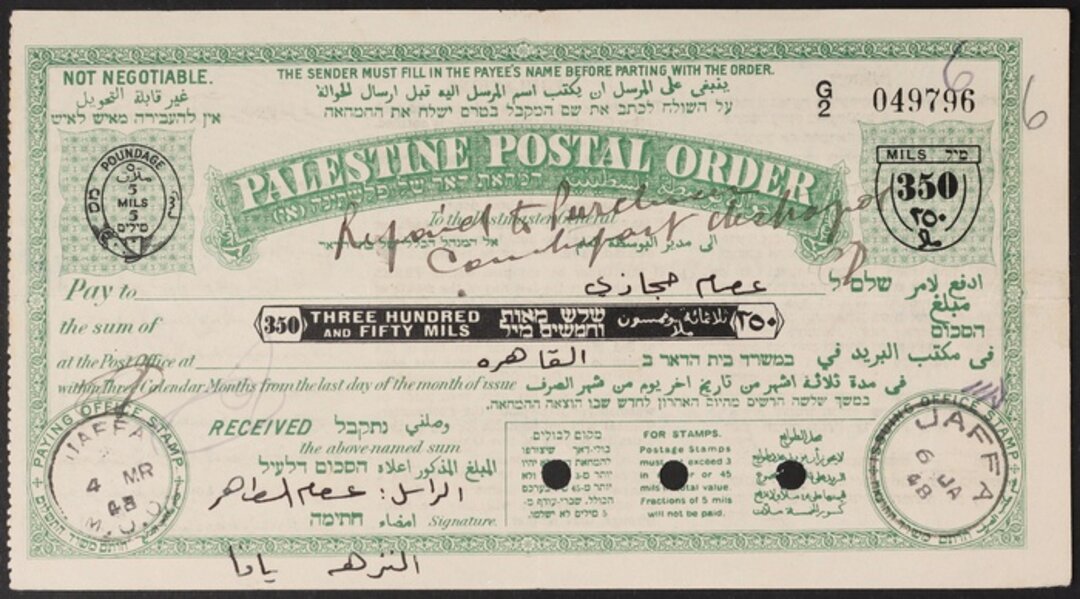 NOT NEGOTIABLE.
غير قابلة التحويل
אין להעבירה מאיש לאיש
THE SENDER MUST FILL IN THE PAYEE'S NAME BEFORE PARTING WITH THE ORDER.
ينبغى على المرسل ان يكتب اسم المرسل اليه قبل ارسال الحوالة
על השולח לכתב את שם המקבל בטרם ישלח את ההמחאה
G/2 049796
6
6
POUNDAGE
5
MILS
5
מילים
MILS מיל
350
٣٥٠
PALESTINE POSTAL ORDER
המחאת דאר של פלשתינה (א״י)
To the Postmaster General
الى مدير البوسطة العام
אל המנהל הכללי של הדאר
Repaid to Purchaser
Pay to عصام حجازي שלם ל ادفع لامر
the sum of مبلغ הסכום
350 THREE HUNDRED AND FIFTY MILS שלש מאות וחמשים מיל ثلاثمائة وخمسون ملا ٣٥٠
at the Post Office at القاهره במשרד בית הדאר ב في مكتب البريد في
within Three Calendar Months from the last day of the month of issue في مدة ثلاثة اشهر من تاريخ اخر يوم من شهر الصرف
במשך שלשה חדשים מהיום האחרון לחדש שבו הוצאה ההמחאה.
RECEIVED נתקבל وصلني
the above-named sum
הסכום דלעיל المبلغ المذكور اعلاه
الراسل: عصام الطاهر
חתימה امضاء Signature.
النزهه يافا
מקום לבולים.
FOR STAMPS.
Postage Stamps
must exceed 3
in or 45
mils total value.
Fractions of 5 mils
will not be paid.
محل الطوابع
PAYING OFFICE STAMP
JAFFA
4 MR
48
M.O.O
ISSUING OFFICE STAMP
JAFFA
6 JA
48